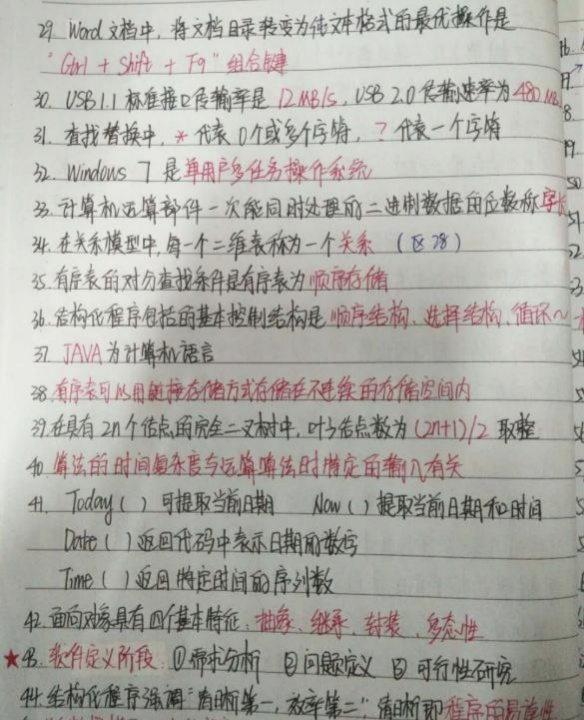 29. Word文档中，将文档目录转变为纯文本格式的最优操作是
"Ctrl + Shift + F9"组合键
30. USB1.1标准接口传输率是12MB/s，USB 2.0传输速率为480MB
31. 查找替换中，*代表0个或多个字符，？代表一个字符
32. Windows 7是单用户多任务操作系统
33. 计算机运算部件一次能同时处理的二进制数据的位数称字长
34. 在关系模型中，每一个二维表称为一个关系（区28）
35. 有序表的对分查找条件是有序表为顺序存储
36. 结构化程序包括的基本控制结构是顺序结构、选择结构、循环~
37. JAVA为计算机语言
38. 有序表可以用链接存储方式存储在不连续的存储空间内
39. 在具有2n个结点的完全二叉树中，叶子结点数为(2n+1)/2 取整
40. 算法的时间复杂度与运算算法时特定的输入有关
41. Today（ ）可提取当前日期 Now（ ）提取当前日期和时间
Date（ ）返回代码中表示日期的数字
Time（ ）返回特定时间的序列数
42. 面向对象具有四个基本特征：抽象、继承、封装、多态性
★43. 软件定义阶段：①需求分析 ②问题定义 ③可行性研究
44. 结构化程序强调"清晰第一，效率第二"，清晰即程序的易读性